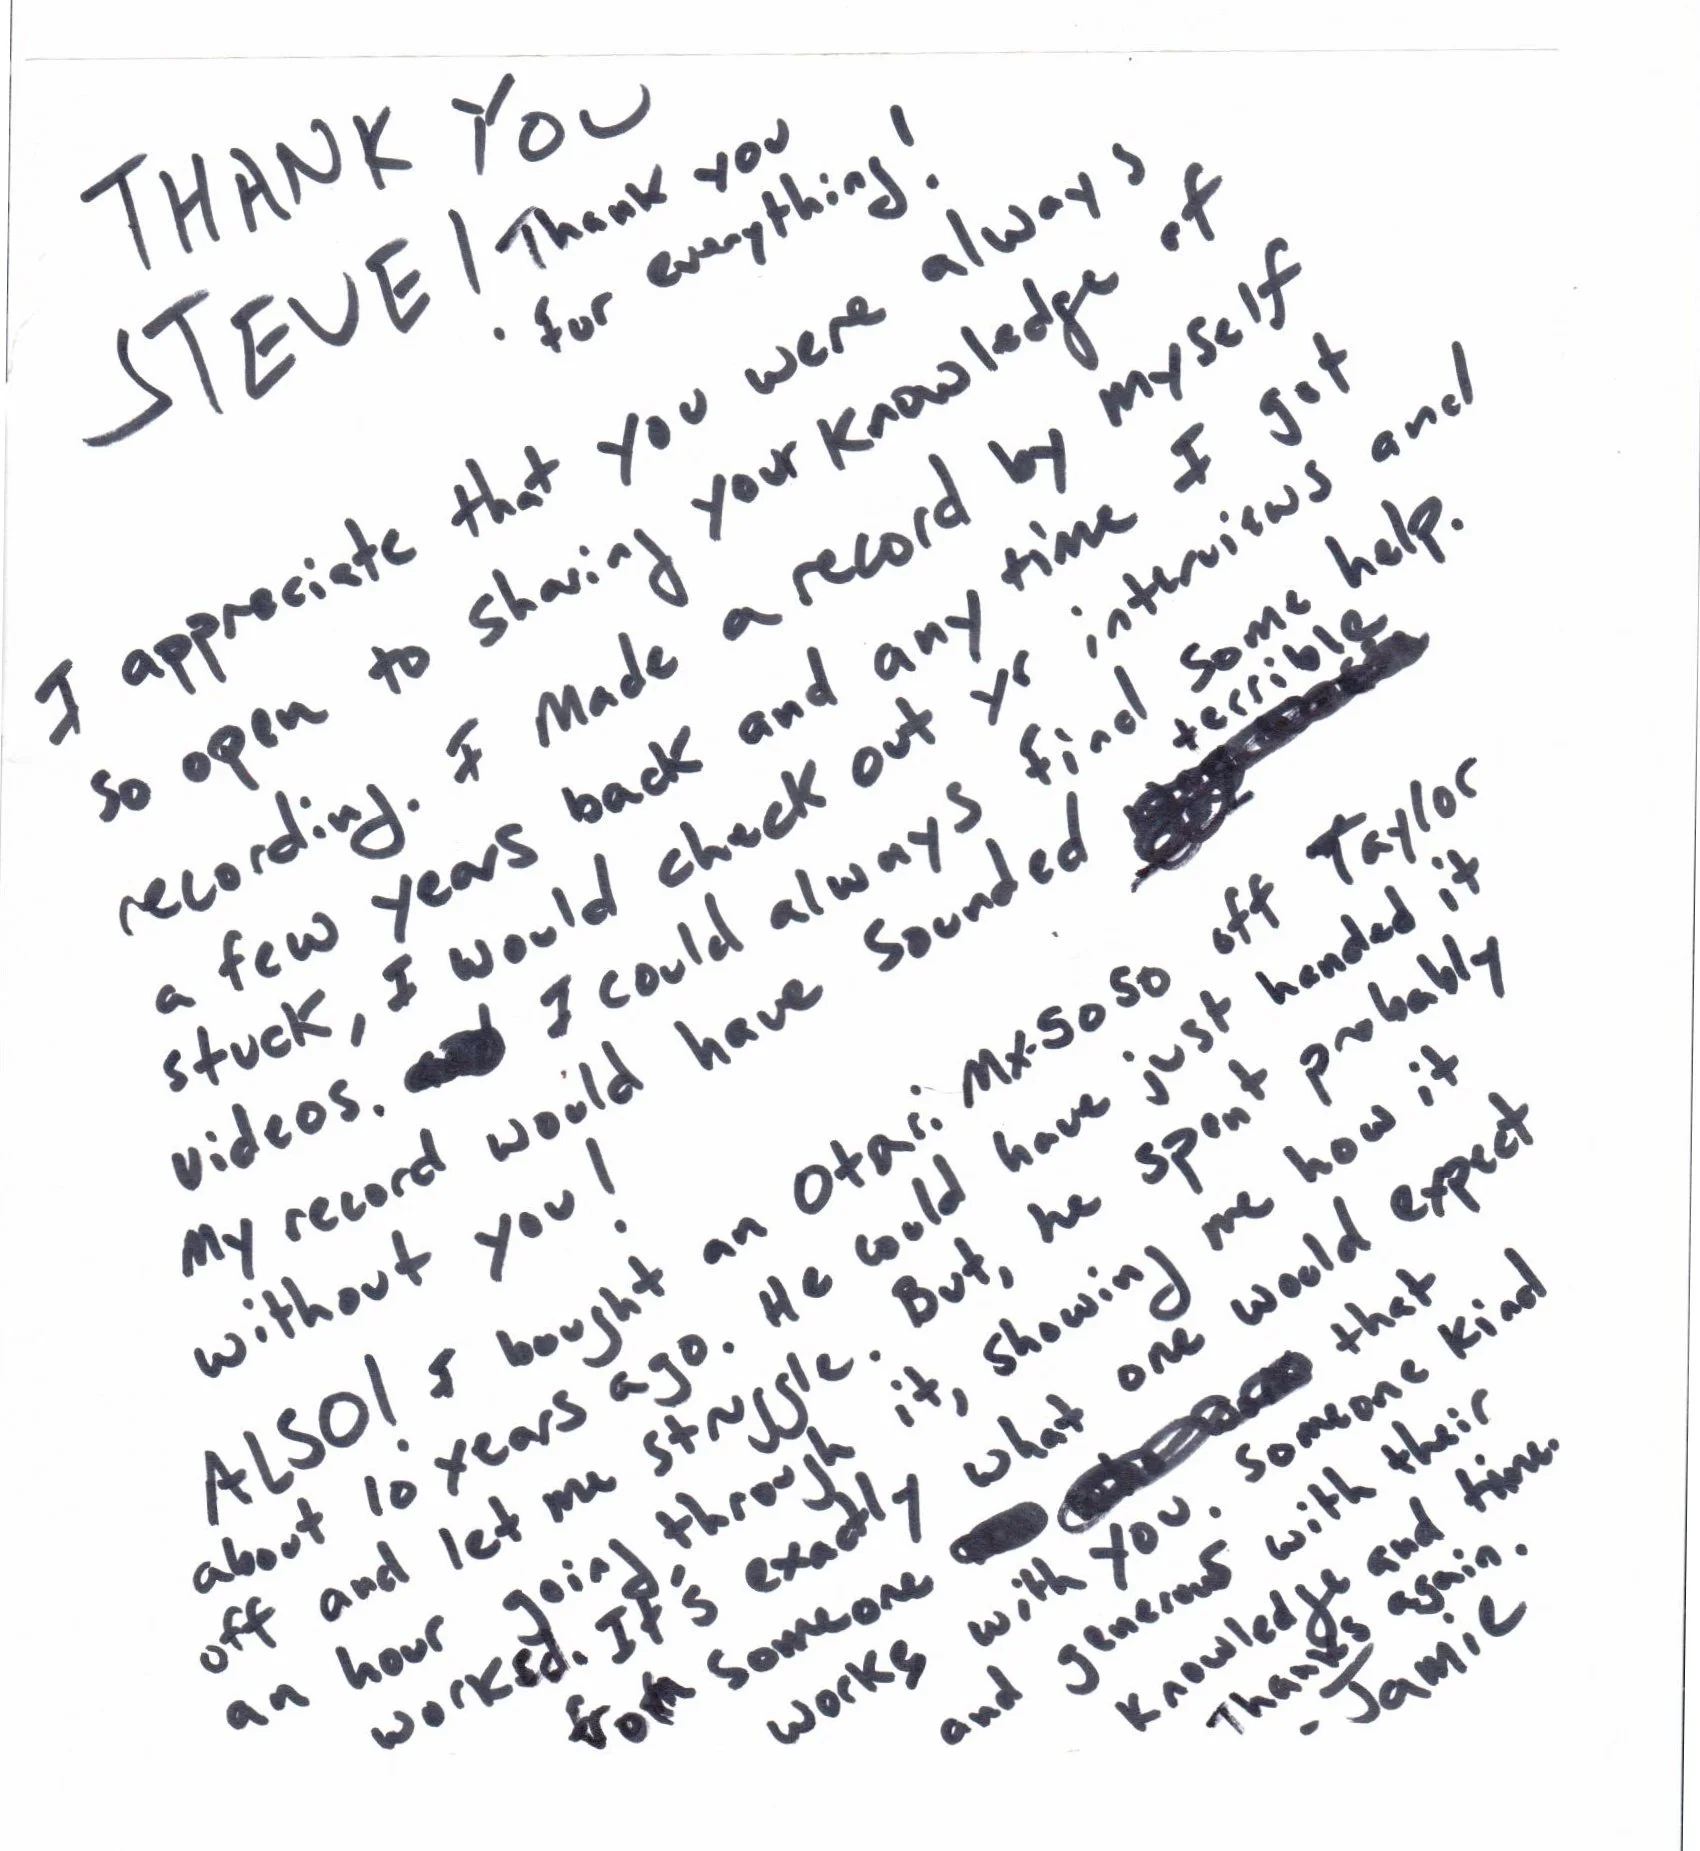 THANK YOU
STEVE! Thank you
for everything!
I appreciate that you were always
so open to sharing your knowledge of
recording. I made a record by myself
a few years back and any time I got
stuck, I would check out yr interviews and
videos. I could always find some help.
My record would have sounded terrible
without you!
ALSO! I bought an Otari MX-5050 off Taylor
about 10 years ago. He could have just handed it
off and let me struggle. But, he spent probably
an hour going through it, showing me how it
worked. It's exactly what one would expect
from someone that
works with you. Someone kind
and generous with their
knowledge and time.
Thanks again.
- Jamie